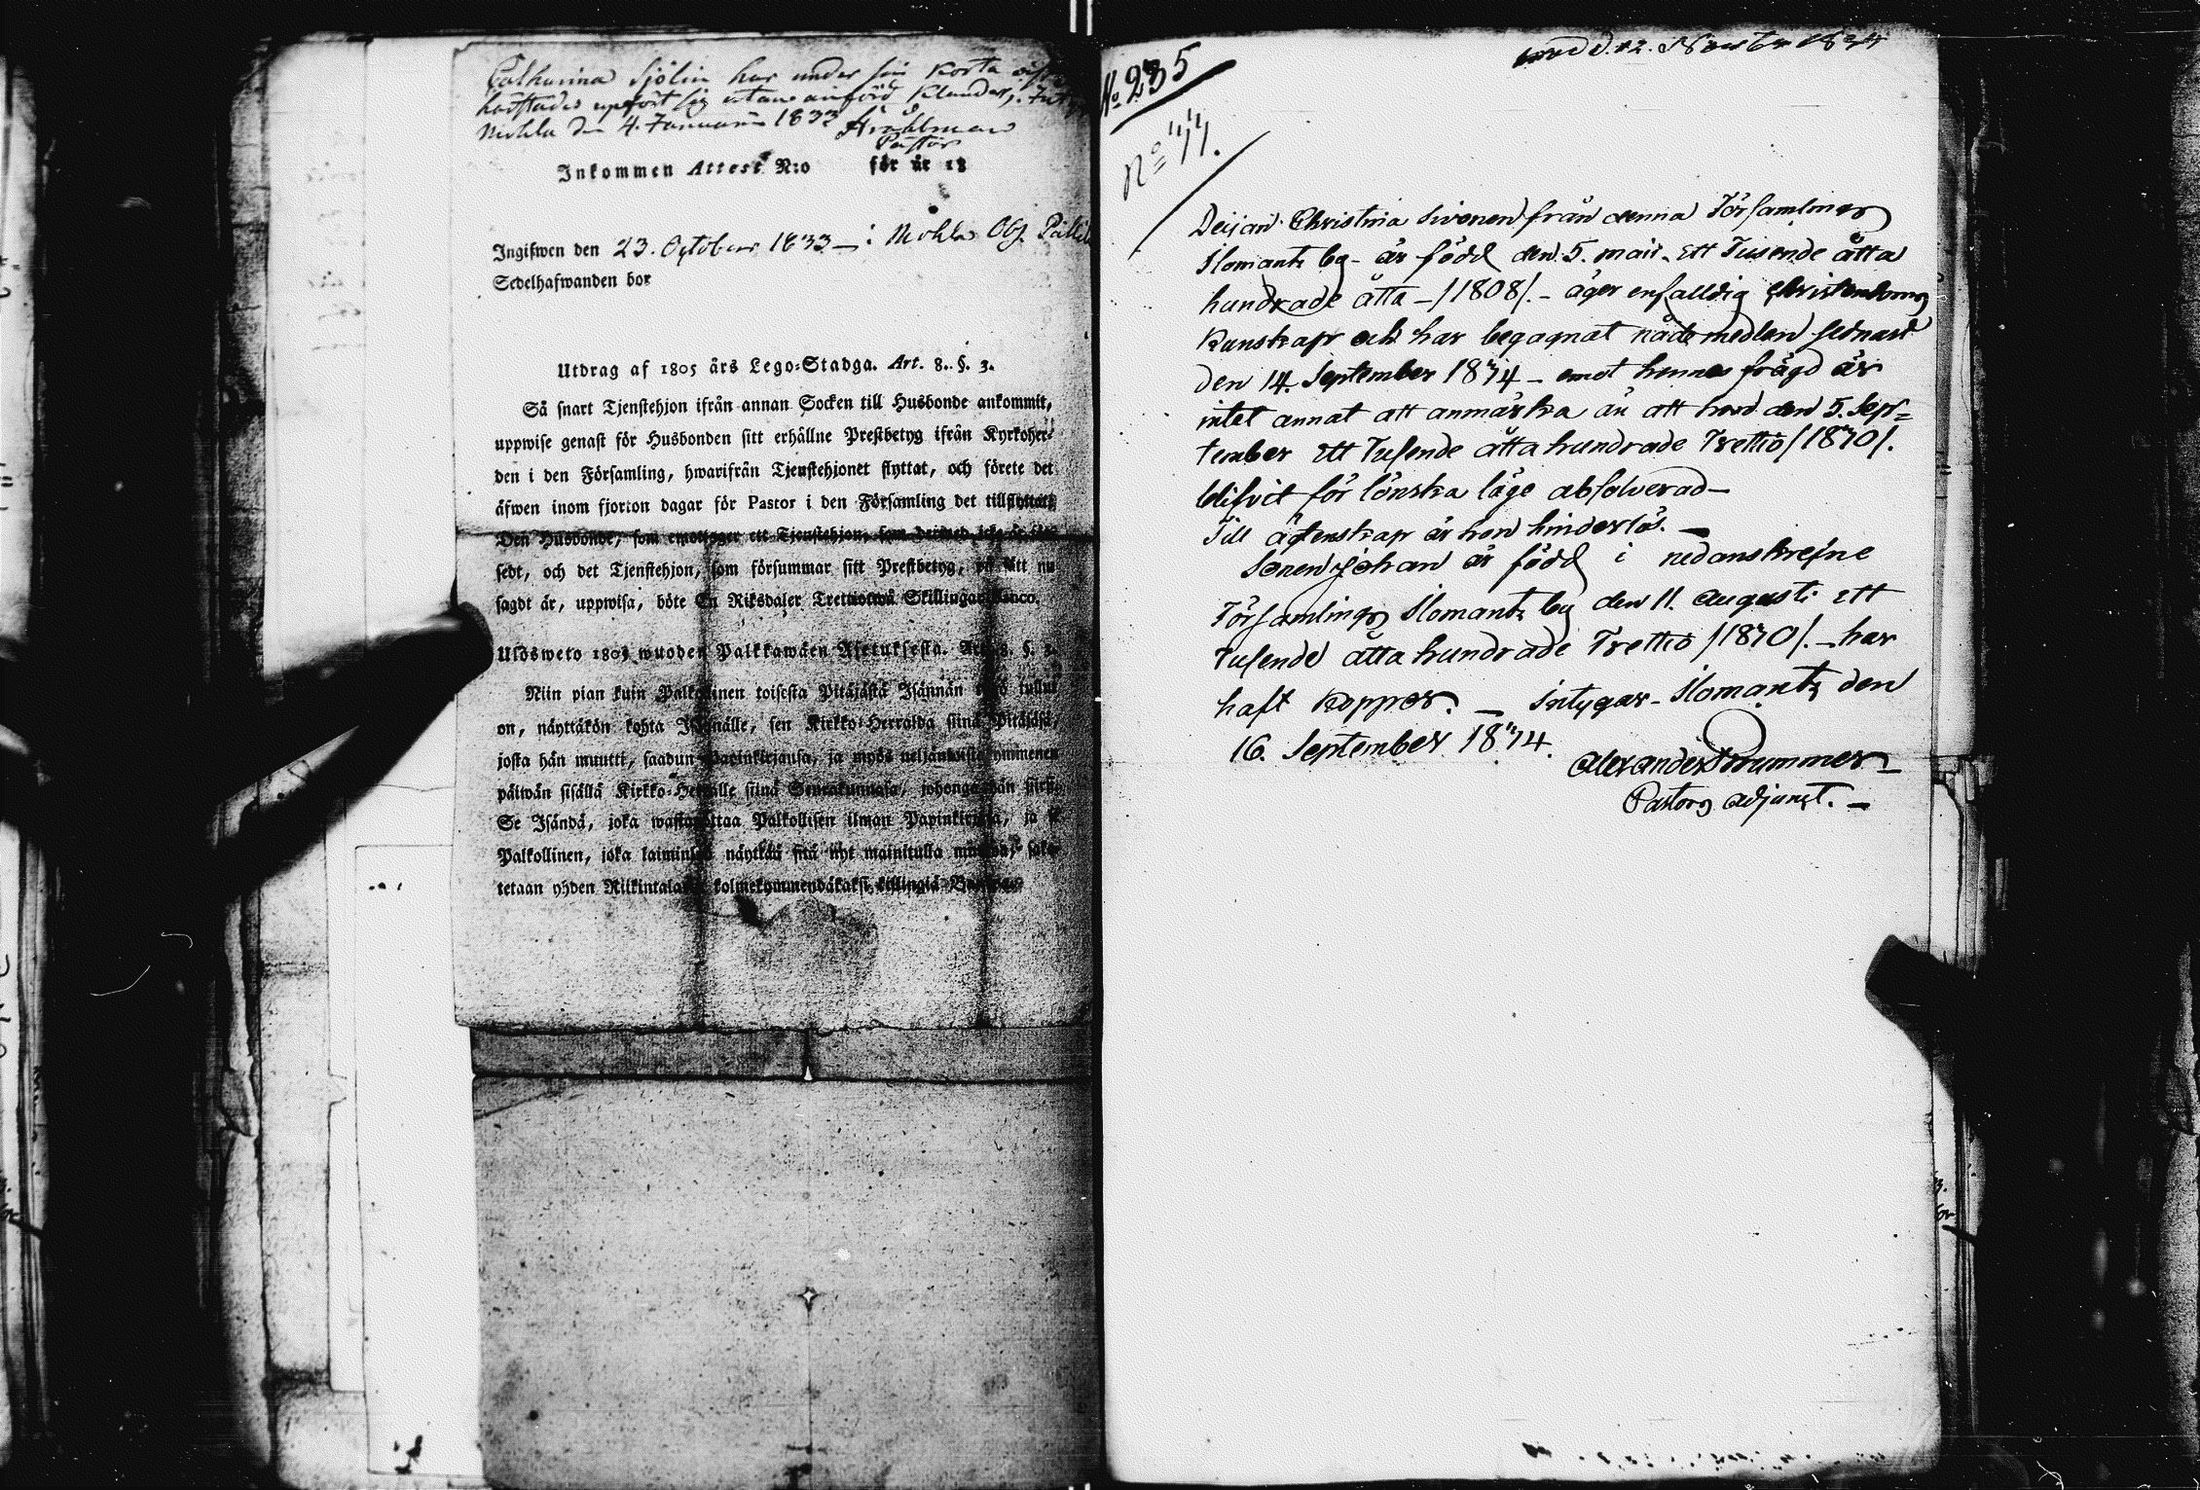 Catharina Sjölin har under sin korta
härstädes uppfört sig utan anförd klander,
Mohla den 4. Januari 1833 Strahlman
Pastor
Inkommen Attest N:o för år 18
Ingifwen den 23. October 1833 — : Mohla
Sedelhafwanden bor
Utdrag af 1805 års Lego-Stadga. Art. 8. §. 3.
Så snart Tjenstehjon ifrån annan Socken till Husbonde ankommit,
uppwise genast för Husbonden sitt erhållne Prestbetyg ifrån Kyrkoher-
den i den Församling, hwarifrån Tjenstehjonet flyttat, och förete det
äfwen inom fjorton dagar för Pastor i den Församling det tillflyttat;
Den Husbonde, som emottager ett Tjenstehjon, som dermed icke är för-
sedt, och det Tjenstehjon, som försummar sitt Prestbetyg, på sätt nu
sagdt är, uppwisa, böte En Riksdaler Trettiotwå Skillingar Banco.
Ulosweto 1805 wuoden Palkkawäen Asetuksesta. Art. 8. §. 3.
Niin pian kuin Palkollinen toisesta Pitäjästä Isännän tygö tullut
on, näyttäkön kohta Isännälle, sen Kirkko-Herralda siinä Pitäjäsä,
josta hän muutti, saadun Papinkirjansa, ja myös neljäntoistakymmenen
päiwän sisällä Kirkko-Herralle siinä Seurakunnasa, johonga hän siirty.
Se Isändä, joka wastanottaa Palkollisen ilman Papinkirjata, ja se
Palkollinen, joka laiminlyö näyttää sitä nyt mainitulla muodolla, sako-
tetaan yhden Riikintalarin kolmekymmendäkaksi killingiä Bankosa.
N:o 235
d. 12. 1834
N:o 77.
Deijan Christina Sivonen från denna Församling
Ilomants by - är född den 5. maii. Ett Tusende åtta
hundrade åtta - /1808/. - äger enfalldig Christendoms
Kunskap och har begagnat nådemedlen sednast
den 14. September 1834 - emot hennes frägd är
intet annat att anmärka än att hon den 5. Sep=
tember Ett Tusende åtta hundrade Trettio /1830/.
blifvit för lönska läge absolverad -
Till ägtenskap är hon hinderlös. -
Sonen Johan är född i nedanskrefne
Församling Ilomants by den 11. Augusti Ett
Tusende åtta hundrade Trettio /1830/. - har
haft koppor. - Intygar - Ilomants den
16. September 1834.
Alexander Brummer -
Pastors adjunct. -